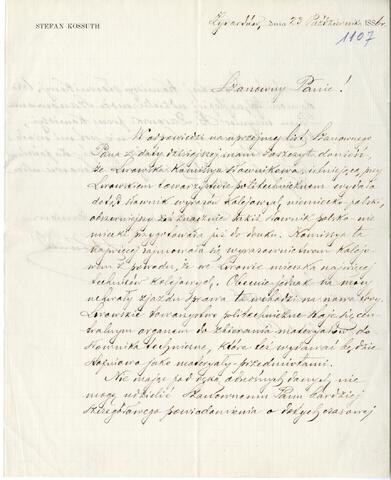 STEFAN KOSSUTH
Żyrardów, dnia 23 Października 1886 r.
1107
Szanowny Panie!
W odpowiedzi na uprzejmy list Szanownego
Pana z daty dzisiejszej mam zaszczyt donieść,
że Lwowska Komissya Słownikowa, istniejąca przy
Lwowskiem towarzystwie politechnicznem wydała
dotąd słownik wyrazów kolejowych niemiecko-polski,
obszerniejszy zaś znacznie tekst słownik polsko-nie
miecki przygotowała już do druku. Komissya ta
najwięcej zajmowała się wyrazownictwem kolejo-
wem z powodu, że we Lwowie mieszka najwięcej
techników kolejowych. Obecnie jednak na mocy
uchwały zjazdu sprawa ta wchodzi na nowe tory.
Lwowskie towarzystwo politechniczne staje się cen-
tralnym organem do zbierania materyałów do
słownika technicznego, które też wydawać będzie
stopniowo jako materyały przedmiotami.
Nie mając pod ręką odnośnych danych nie
mogę udzielić Szanownemu Panu bardziej
szczegółowego powiadomienia o dotychczasowej